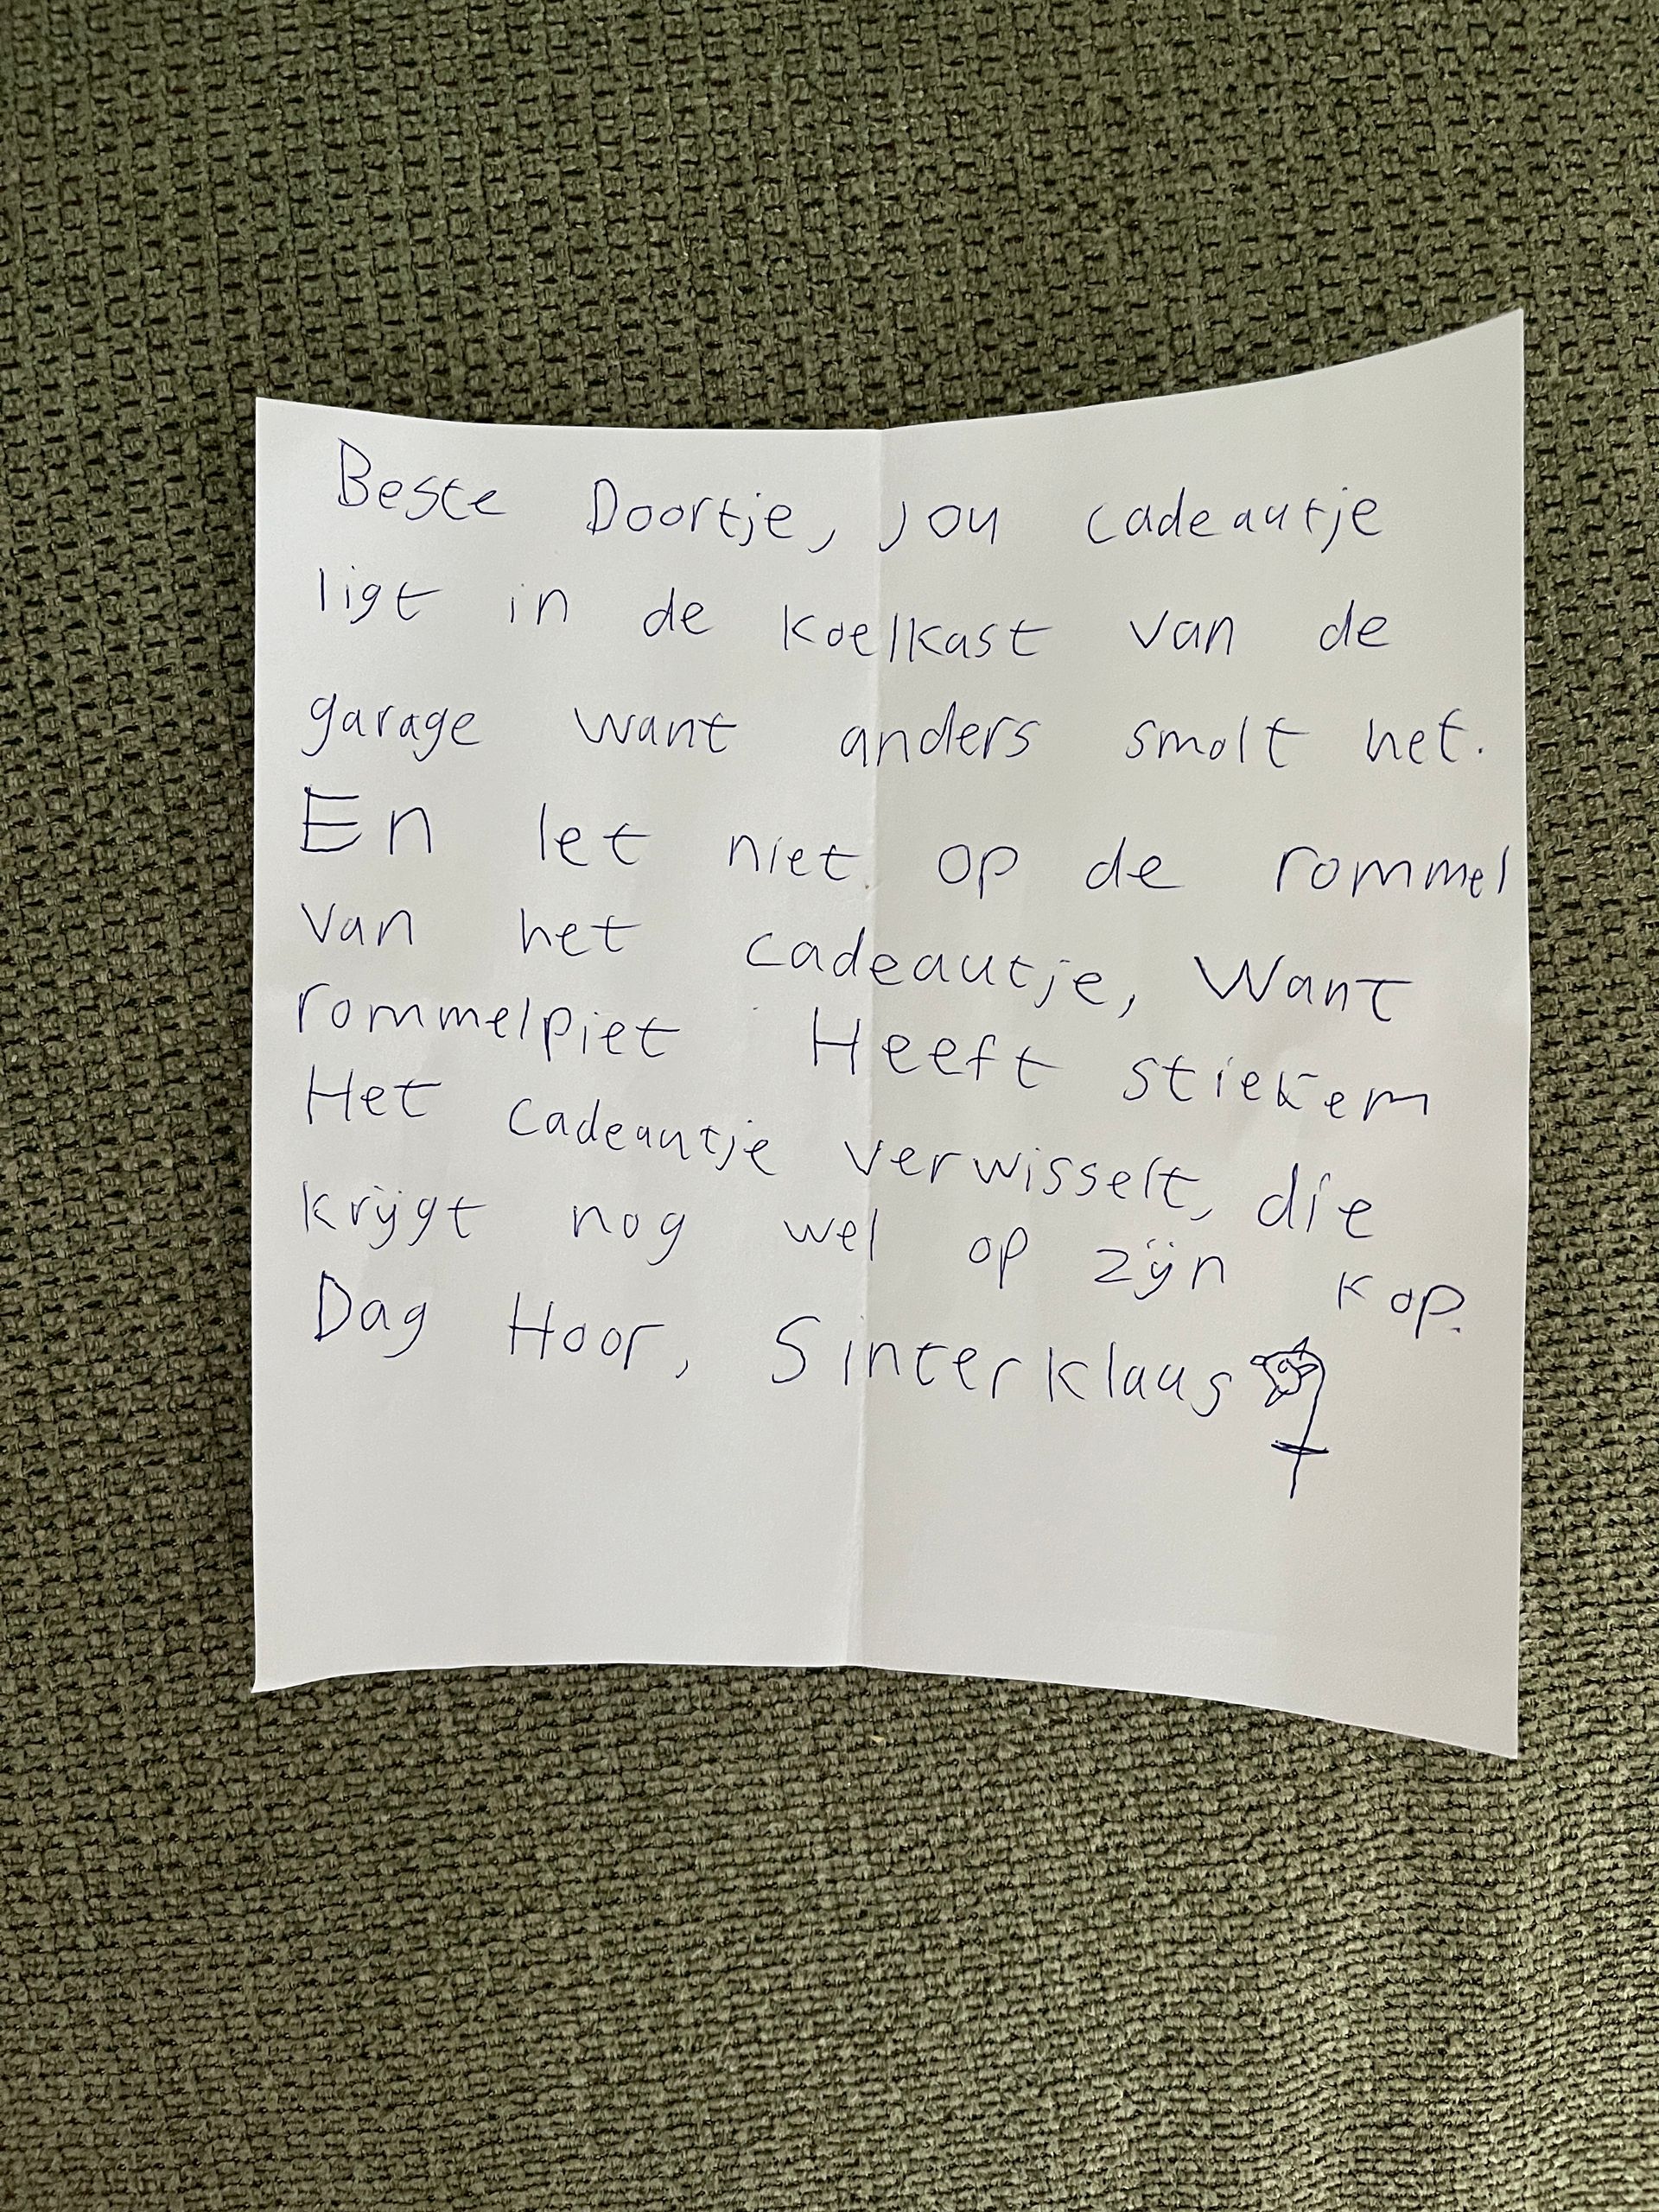 Beste Doortje, jou cadeautje
ligt in de koelkast van de
garage want anders smolt het.
En let niet op de rommel
van het cadeautje, want
rommelpiet Heeft stiekem
Het cadeautje verwisselt, die
krijgt nog wel op zijn kop.
Dag Hoor, Sinterklaas